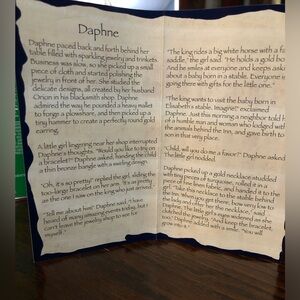 Daphne
Daphne paced back and forth behind her
table filled with sparkling jewelry and trinkets.
Business was slow, so she picked up a small
piece of cloth and started polishing the
jewelry in front of her. She studied the
delicate designs, all created by her husband
Orion in his Blacksmith shop. Daphne
admired the way he pounded a heavy mallet
to forge a plowshare, and then picked up a
tiny hammer to create a perfectly round gold
earring.
A little girl lingering near her shop interrupted
Daphne's thoughts. "Would you like to try on
a bracelet?" Daphne asked, handing the child
a thin bronze bangle with a swirling design.
"Oh, it's so pretty!" replied the girl, sliding the
too-large bracelet on her arm. "It's as pretty
as the one I saw on the king who just arrived."
"Tell me about him!" Daphne said. "I have
heard of many amazing events today, but I
can't leave the jewelry shop to see for
myself."
"The king rides a big white horse with a fa
saddle," the girl said. "He holds a gold bo
And he smiles at everyone and keeps ask
about a baby born in a stable. Everyone i
going there with gifts for the little one."
"The king wants to visit the baby born in
Elisabeth's stable. Imagine!" exclaimed
Daphne. Just this morning a neighbor told h
of a humble man and woman who lodged with
the animals behind the Inn, and gave birth to
son in that very place.
"Child, will you do me a favor?" Daphne asked
The little girl nodded.
Daphne picked up a gold necklace studded
with tiny pieces of turquoise, rolled it in a
piece of fine linen fabric, and handed it to the
girl. "Take this necklace to the stable behind
the Inn. When you get there, bow very low to
the lady and offer her the necklace," said
Daphne. The little girl's eyes widened as she
"Keep this necklace,
too," Daphne added with a smile. "You will
grow into it."